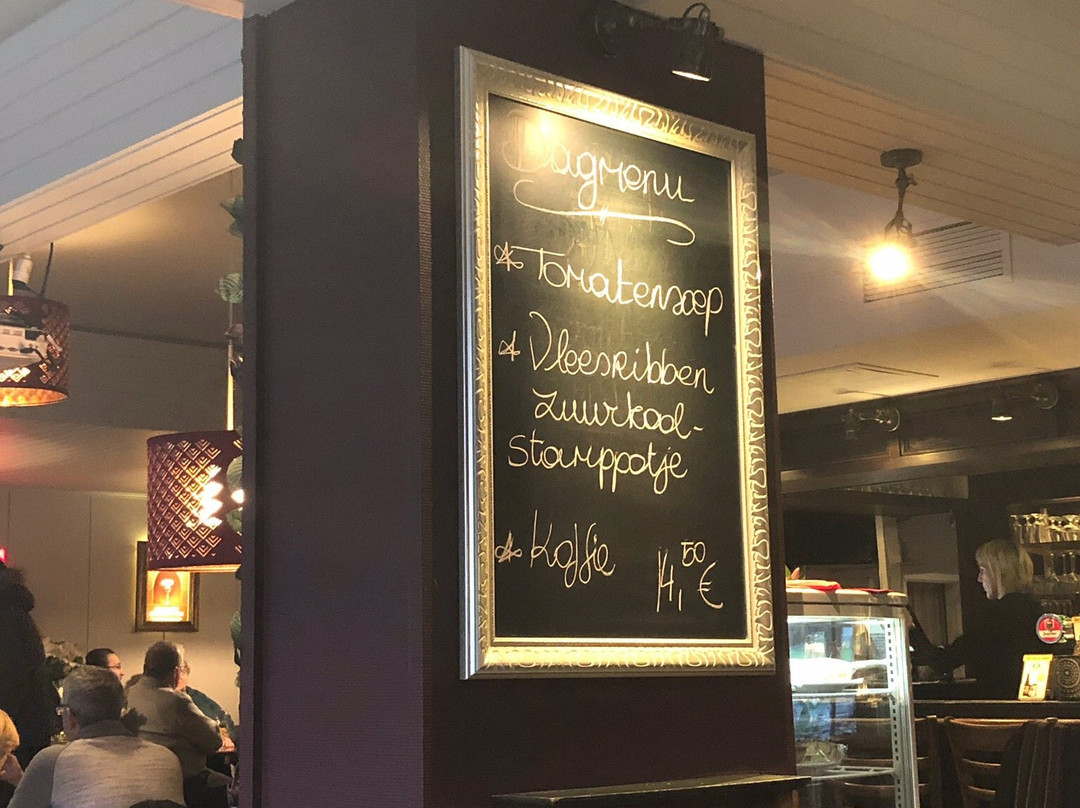 Dagmenu
* Tomatensoep
* Vleesribben
Zuurkool-
stamppotje
* Koffie 14,50 €